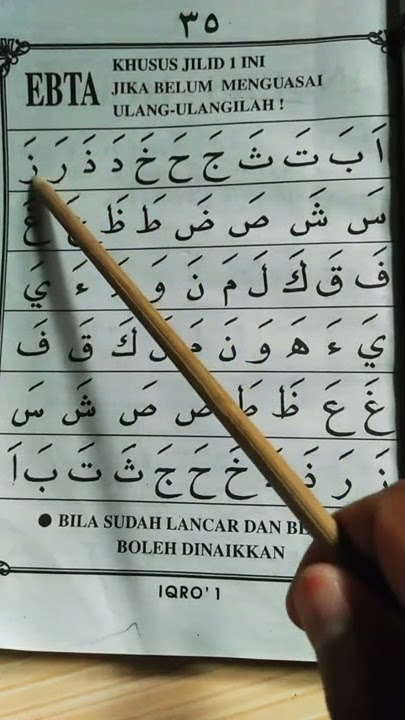 ٣٥
EBTA
KHUSUS JILID 1 INI
JIKA BELUM MENGUASAI
ULANG-ULANGILAH !
اَ بَ تَ ثَ جَ حَ خَ دَ ذَ رَ زَ
سَ شَ صَ ضَ طَ ظَ غَ
فَ قَ كَ لَ مَ نَ وَ ءَ يَ
يَ ءَ هَ وَ نَ مَ لَ كَ قَ فَ
غَ عَ ظَ طَ صَ شَ سَ
زَ رَ ذَ خَ حَ جَ ثَ تَ بَ اَ
● BILA SUDAH LANCAR DAN
BOLEH DINAIKKAN
IQRO' 1